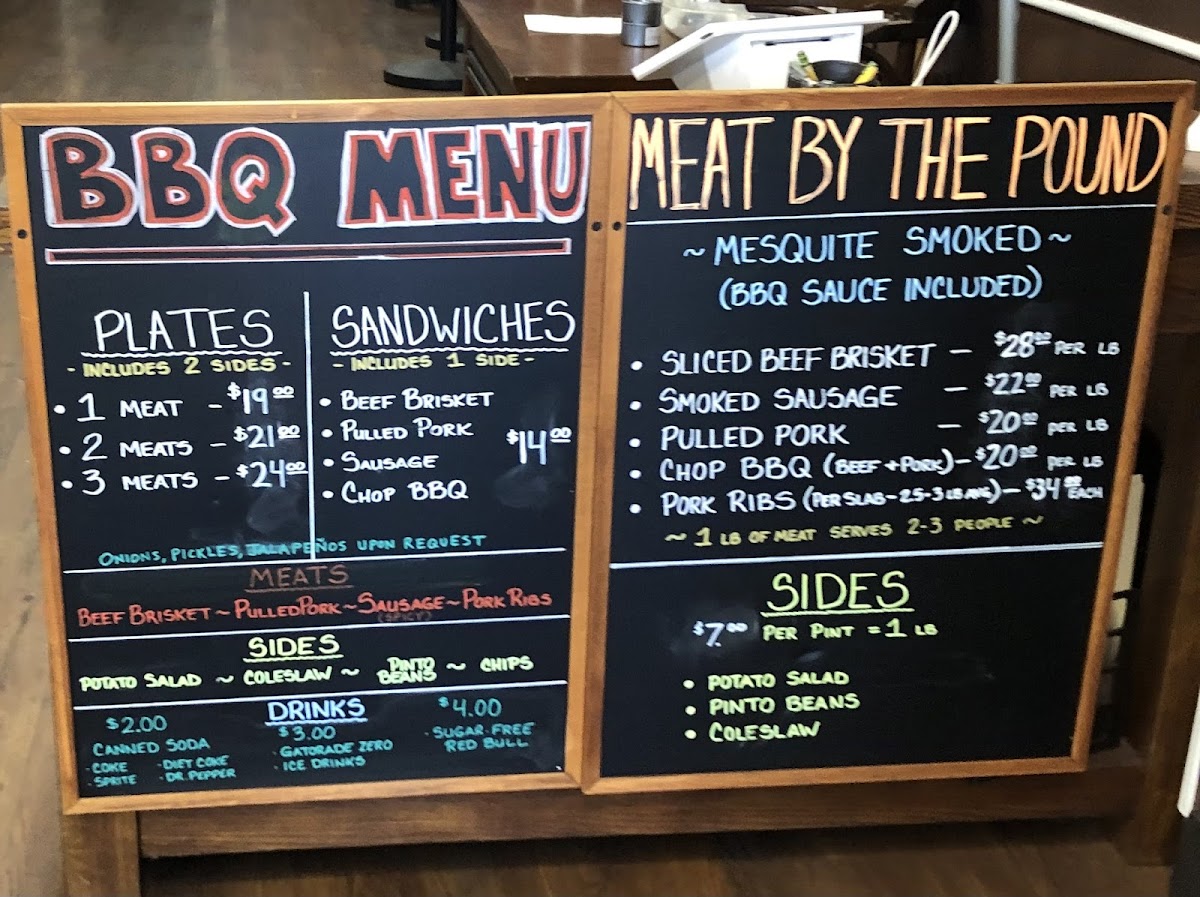 BBQ MENU
PLATES
- INCLUDES 2 SIDES -
• 1 MEAT - $19.00
• 2 MEATS - $21.00
• 3 MEATS - $24.00
SANDWICHES
- INCLUDES 1 SIDE -
• BEEF BRISKET
• PULLED PORK
• SAUSAGE
• CHOP BBQ
$14.00
ONIONS, PICKLES, JALAPEÑOS UPON REQUEST
MEATS
BEEF BRISKET ~ PULLED PORK ~ SAUSAGE ~ PORK RIBS
(SPICY)
SIDES
POTATO SALAD ~ COLESLAW ~ PINTO BEANS ~ CHIPS
DRINKS
$2.00
CANNED SODA
· COKE · DIET COKE
· SPRITE · DR. PEPPER
$3.00
· GATORADE ZERO
· ICE DRINKS
$4.00
· SUGAR-FREE
RED BULL
MEAT BY THE POUND
~ MESQUITE SMOKED ~
(BBQ SAUCE INCLUDED)
• SLICED BEEF BRISKET — $28.00 PER LB
• SMOKED SAUSAGE — $22.00 PER LB
• PULLED PORK — $20.00 PER LB
• CHOP BBQ (BEEF + PORK) — $20.00 PER LB
• PORK RIBS (PER SLAB - 2.5-3 LB AVG) — $34.00 EACH
~ 1 LB OF MEAT SERVES 2-3 PEOPLE ~
SIDES
$7.00 PER PINT = 1 LB
• POTATO SALAD
• PINTO BEANS
• COLESLAW